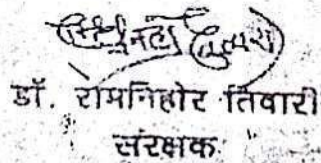 डॉ. रामनिहोर तिवारी
संरक्षक